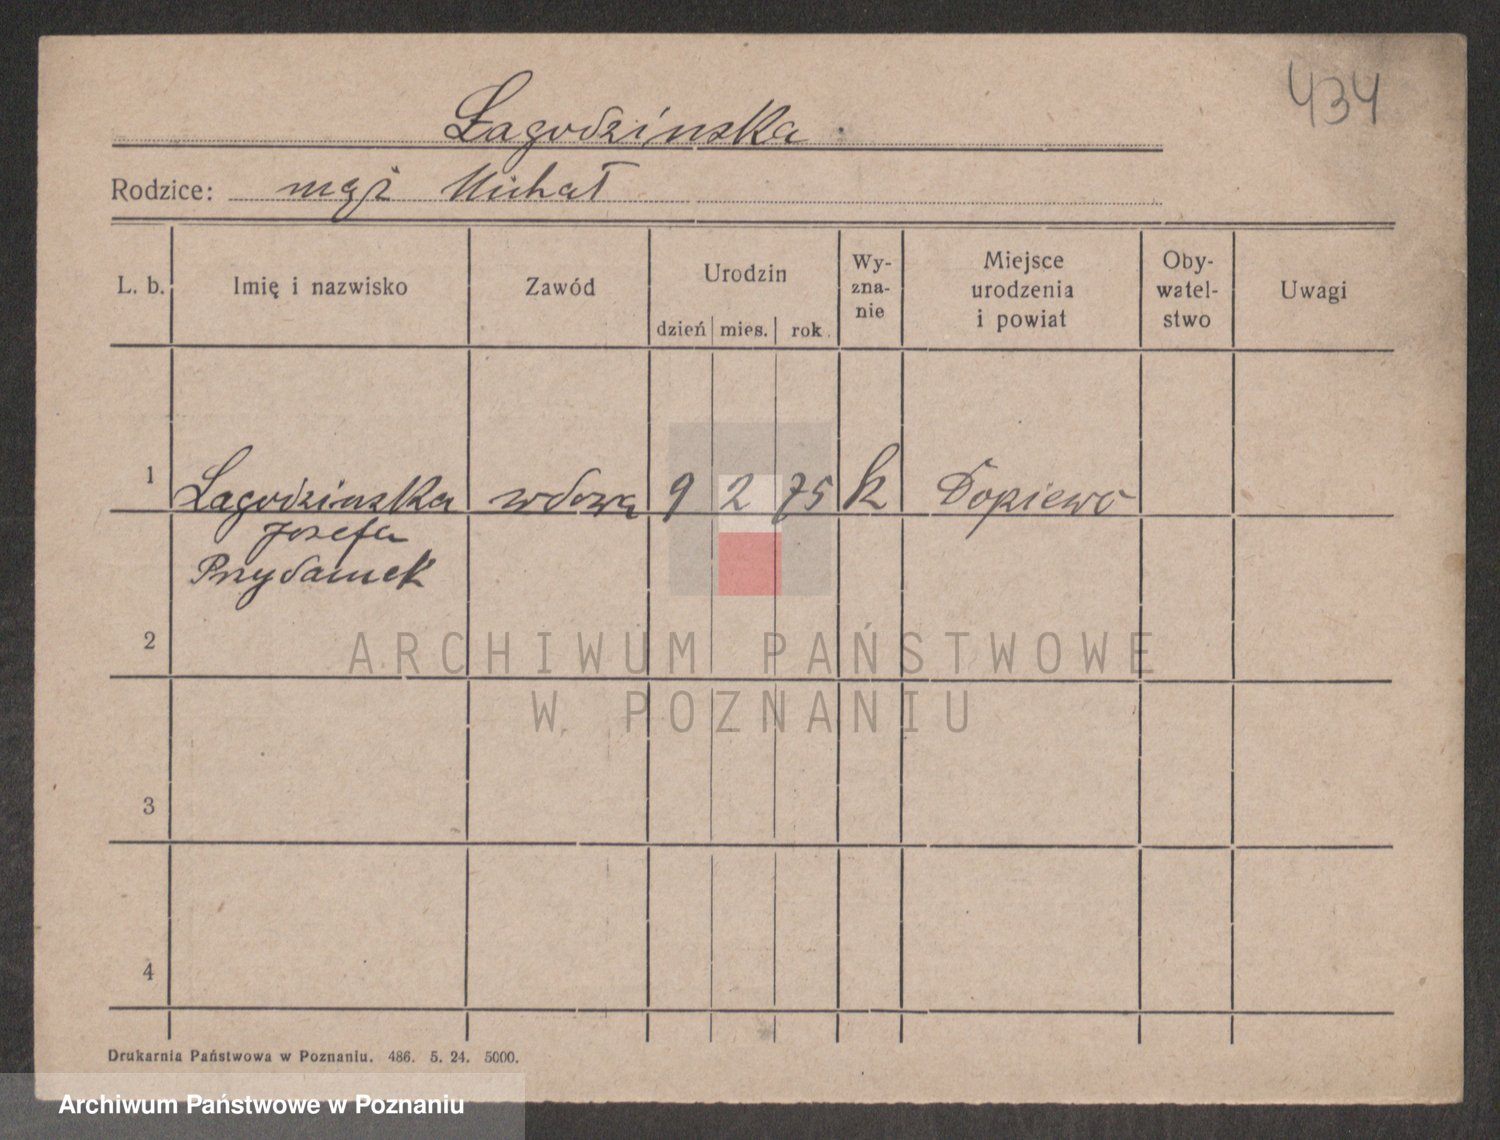 434
Łagodzinska
Rodzice: mąż Michał
L. b. Imię i nazwisko Zawód Urodzin dzień mies. rok Wy-zna-nie Miejsce urodzenia i powiat Oby-watel-stwo Uwagi
1 Łagodzinska wdowa 9 2 75 k Dopiewo
Josefa
Przydanek
2
ARCHIWUM PAŃSTWOWE
W POZNANIU
3
4
Drukarnia Państwowa w Poznaniu. 486. 5. 24. 5000.
Archiwum Państwowe w Poznaniu